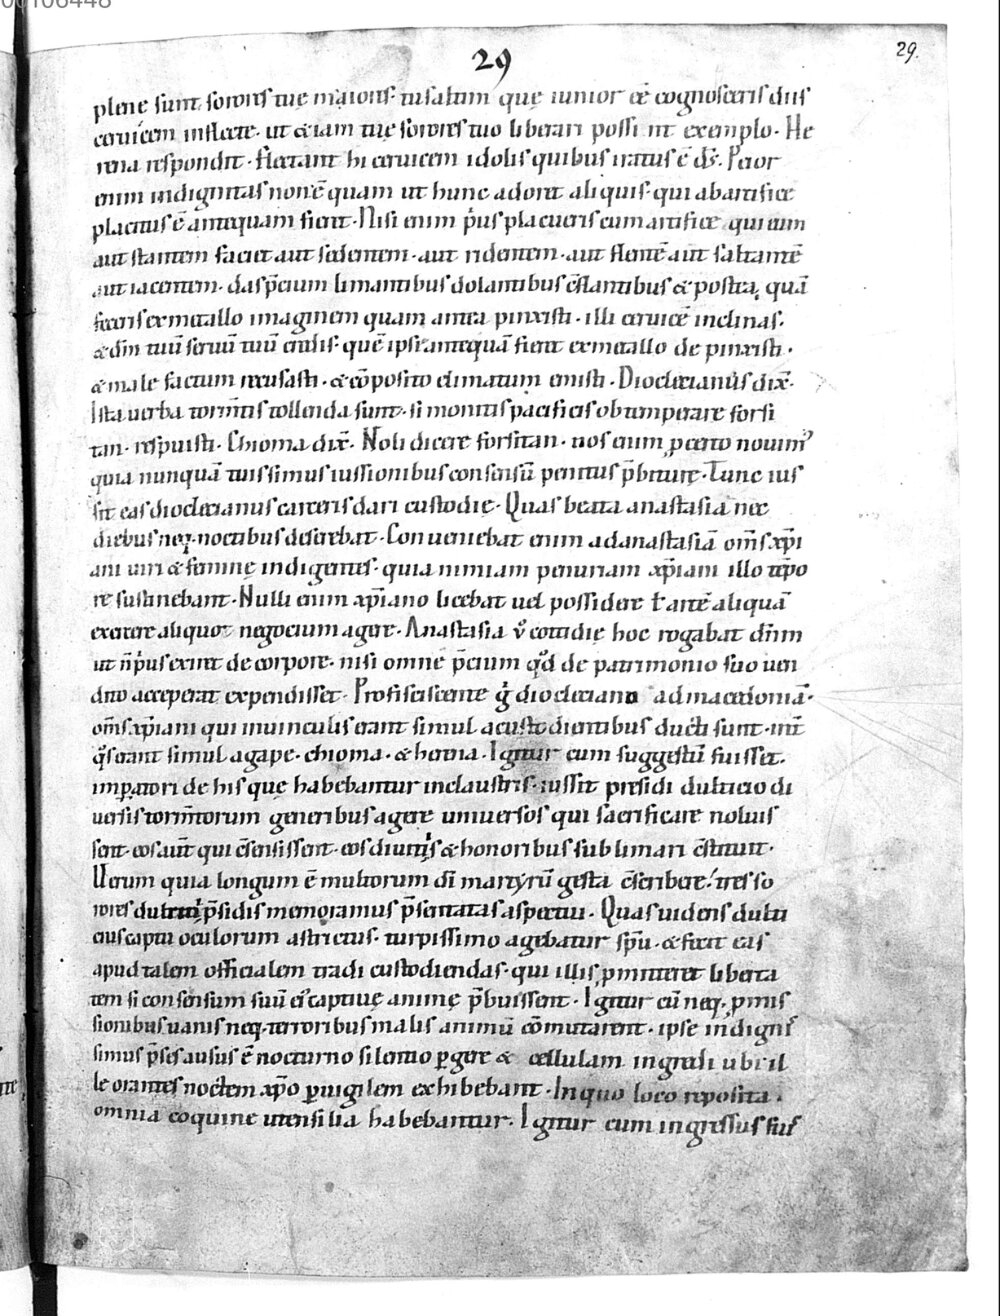 29
29.
plene sunt sororis tuę maioris. tu saltim quę iunior eē cognosceris diis
ceruicem inflecte. ut & iam tuę sorores tuo liberari possint exemplo. He
rena respondit. Flectant hi ceruicem idolis quibus iratus ē ds. Peior
enim indignitas non ē quam ut hunc adoret aliquis qui ab artifice
placatus ē antequam fieret. Nisi enim p̄us placueris cum artifice qui eum
aut stantem faciet aut sedentem. aut ridentem. aut flentē aut saltantē
aut iacentem. das p̄cium limantibus dolantibus c̄flantibus & postea quā
feceris ex metallo imaginem quam antea pinxisti. illi ceruicē inclinas.
& dn̄m tuū seruū tuū credis. quē ipse antequā fieret ex metallo depinxisti.
& male factum recusasti. & cōposito elimatum emisti. Dioclecianus dix̄.
Ista uerba torm̄tis tollenda sunt. si monitis pacificis obtemperare forsi
tan. respuisti. Chioma dix̄. Noli dicere forsitan. nos enim ꝑ certo nouim᾽
quia nunquā tuis simus iussionibus consensū penitus p̄biturę. Tunc ius
sit eas dioclecianus carceris dari custodię. Quas beata anastasia nec
diebus neq. noctibus deserebat. Conueniebat enim ad anastasiā om̄s xp̄i
ani uiri & feminę indigentes. quia nimiam penuriam xp̄iani illo tēpo
re sustinebant. Nulli enim xp̄iano licebat uel possidere ł artē aliquā
exercere aliquot negocium agere. Anastasia v̊ cottidię hoc rogabat dn̄m
ut n̄ p̄us exiret de corpore. nisi omne p̄cium qd̄ de patrimonio suo uen
dito acceperat expendisset. Proficiscente g̊ diocleciano ad macedoniā.
om̄s xp̄iani qui in uinculis erant simul a custodientibus ducti sunt. int̄
q̊s erant simul agape. chioma. & herena. Igitur cum suggestū fuisset
imꝑatori de his quę habebantur in claustris. iussit presidi dulcicio di
uersis torm̄torum generibus agere uniuersos qui sacrificare noluis
sent. eos aut̄ qui c̄sensissent. eos diuitiis & honoribus sublimari c̄stituit.
Verum quia longum ē multorum dī martyrū gesta c̄scribere. tres so
rores dulcitii p̄sidis memoramus p̄sentatas aspectui. Quas uidens dulci
cius captu oculorum astrictus. turpissimo agebatur sp̄u. & fecit eas
apud talem officialem tradi custodiendas. qui illis ꝑmitteret liberta
tem si consensum suū ei᾽ captiuę animę p̄buissent. Igitur cū neq. ꝓmis
sionibus uanis neq. terroribus malis animū cōmutarent. ipse indignis
simus p̄ses ausus ē nocturno silentio ꝑgere & cellulam ingredi ubi il
le orantes noctem xp̄o ꝑuigilem exhibebant. In quo loco reposita.
omnia coquine utensilia habebantur. Igitur cum ingressus fuis